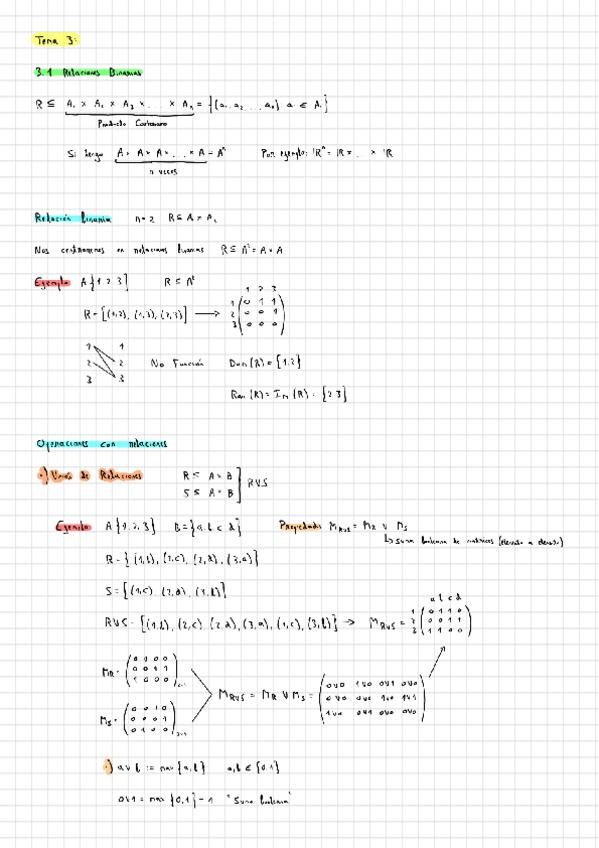 Tema 3:
3.1 Relaciones Binarias
R ⊆ A₁ × A₂ × A₃ × ... × Aₙ = {(a₁ a₂ ... aₙ) aᵢ ∈ Aᵢ}
Producto Cartesiano
Si tengo A × A × A × ... × A = Aⁿ Por ejemplo: ℝⁿ = ℝ × ... × ℝ
n veces
Relación binaria n=2 R ⊆ A₁ × A₂
Nos centraremos en relaciones binarias R ⊆ A² = A × A
Ejemplo A{1,2,3} R ⊆ A²
1 2 3
R = {(1,2), (1,3), (2,3)} → 1 0 1 1
2 0 0 1
3 0 0 0
1 1
2 2 No Función Dom(R) = {1,2}
3 3
Ran(R) = Im(R) = {2,3}
Operaciones con relaciones
·) Unión de Relaciones R ⊆ A × B
S ⊆ A × B
RUS
Ejemplo A{1,2,3} B={a,b,c,d} Propiedad: M_RUS = M_R ∨ M_S
↳ suma booleana de matrices (elemento a elemento)
R = {(1,b), (2,c), (2,d), (3,a)}
S = {(1,c), (2,d), (3,b)}
a b c d
RUS = {(1,b), (2,c), (2,d), (3,a), (1,c), (3,b)} → M_RUS = 1 0 1 1 0
2 0 0 1 1
3 1 1 0 0
M_R = 0 1 0 0
0 0 1 1
1 0 0 0
M_RUS = M_R ∨ M_S = 0∨0 1∨0 0∨1 0∨0
0∨0 0∨0 1∨0 1∨1
1∨0 0∨1 0∨0 0∨0
M_S = 0 0 1 0
0 0 0 1
0 1 0 0
·) a∨b := max{a,b} a,b ∈ {0,1}
0∨1 = max{0,1} = 1 "Suma booleana"